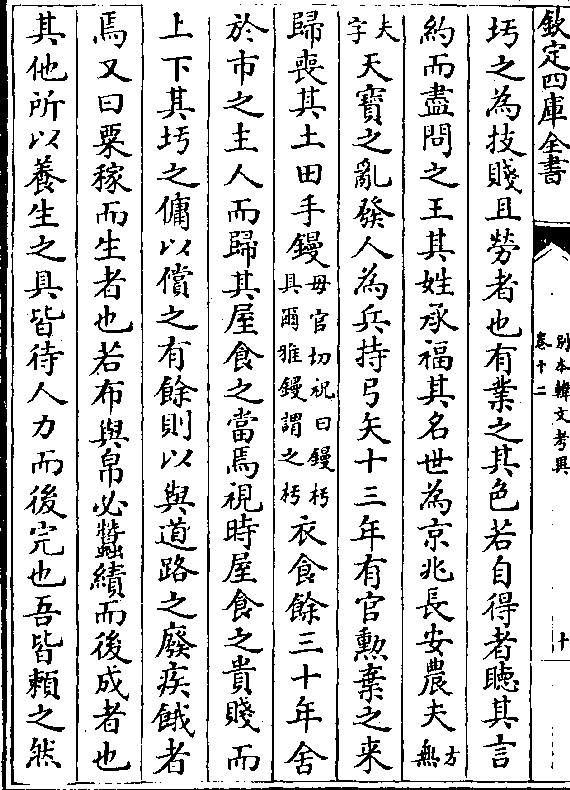 欽定四庫全書
別本韓文考異
卷十二
十
圬之為技賤且勞者也有業之其色若自得者聽其言
約而盡問之王其姓承福其名世為京兆長安農夫方無
夫字天寶之亂發人為兵持弓矢十三年有官勲棄之来
歸喪其土田手鏝毋官切祝曰鏝杇具爾雅鏝謂之杇衣食餘三十年舍
於市之主人而歸其屋食之當焉視時屋食之貴賤而
上下其圬之傭以償之有餘則以與道路之廢疾餓者
焉又曰粟稼而生者也若布與帛必蠶績而後成者也
其他所以養生之具皆待人力而後完也吾皆頼之然